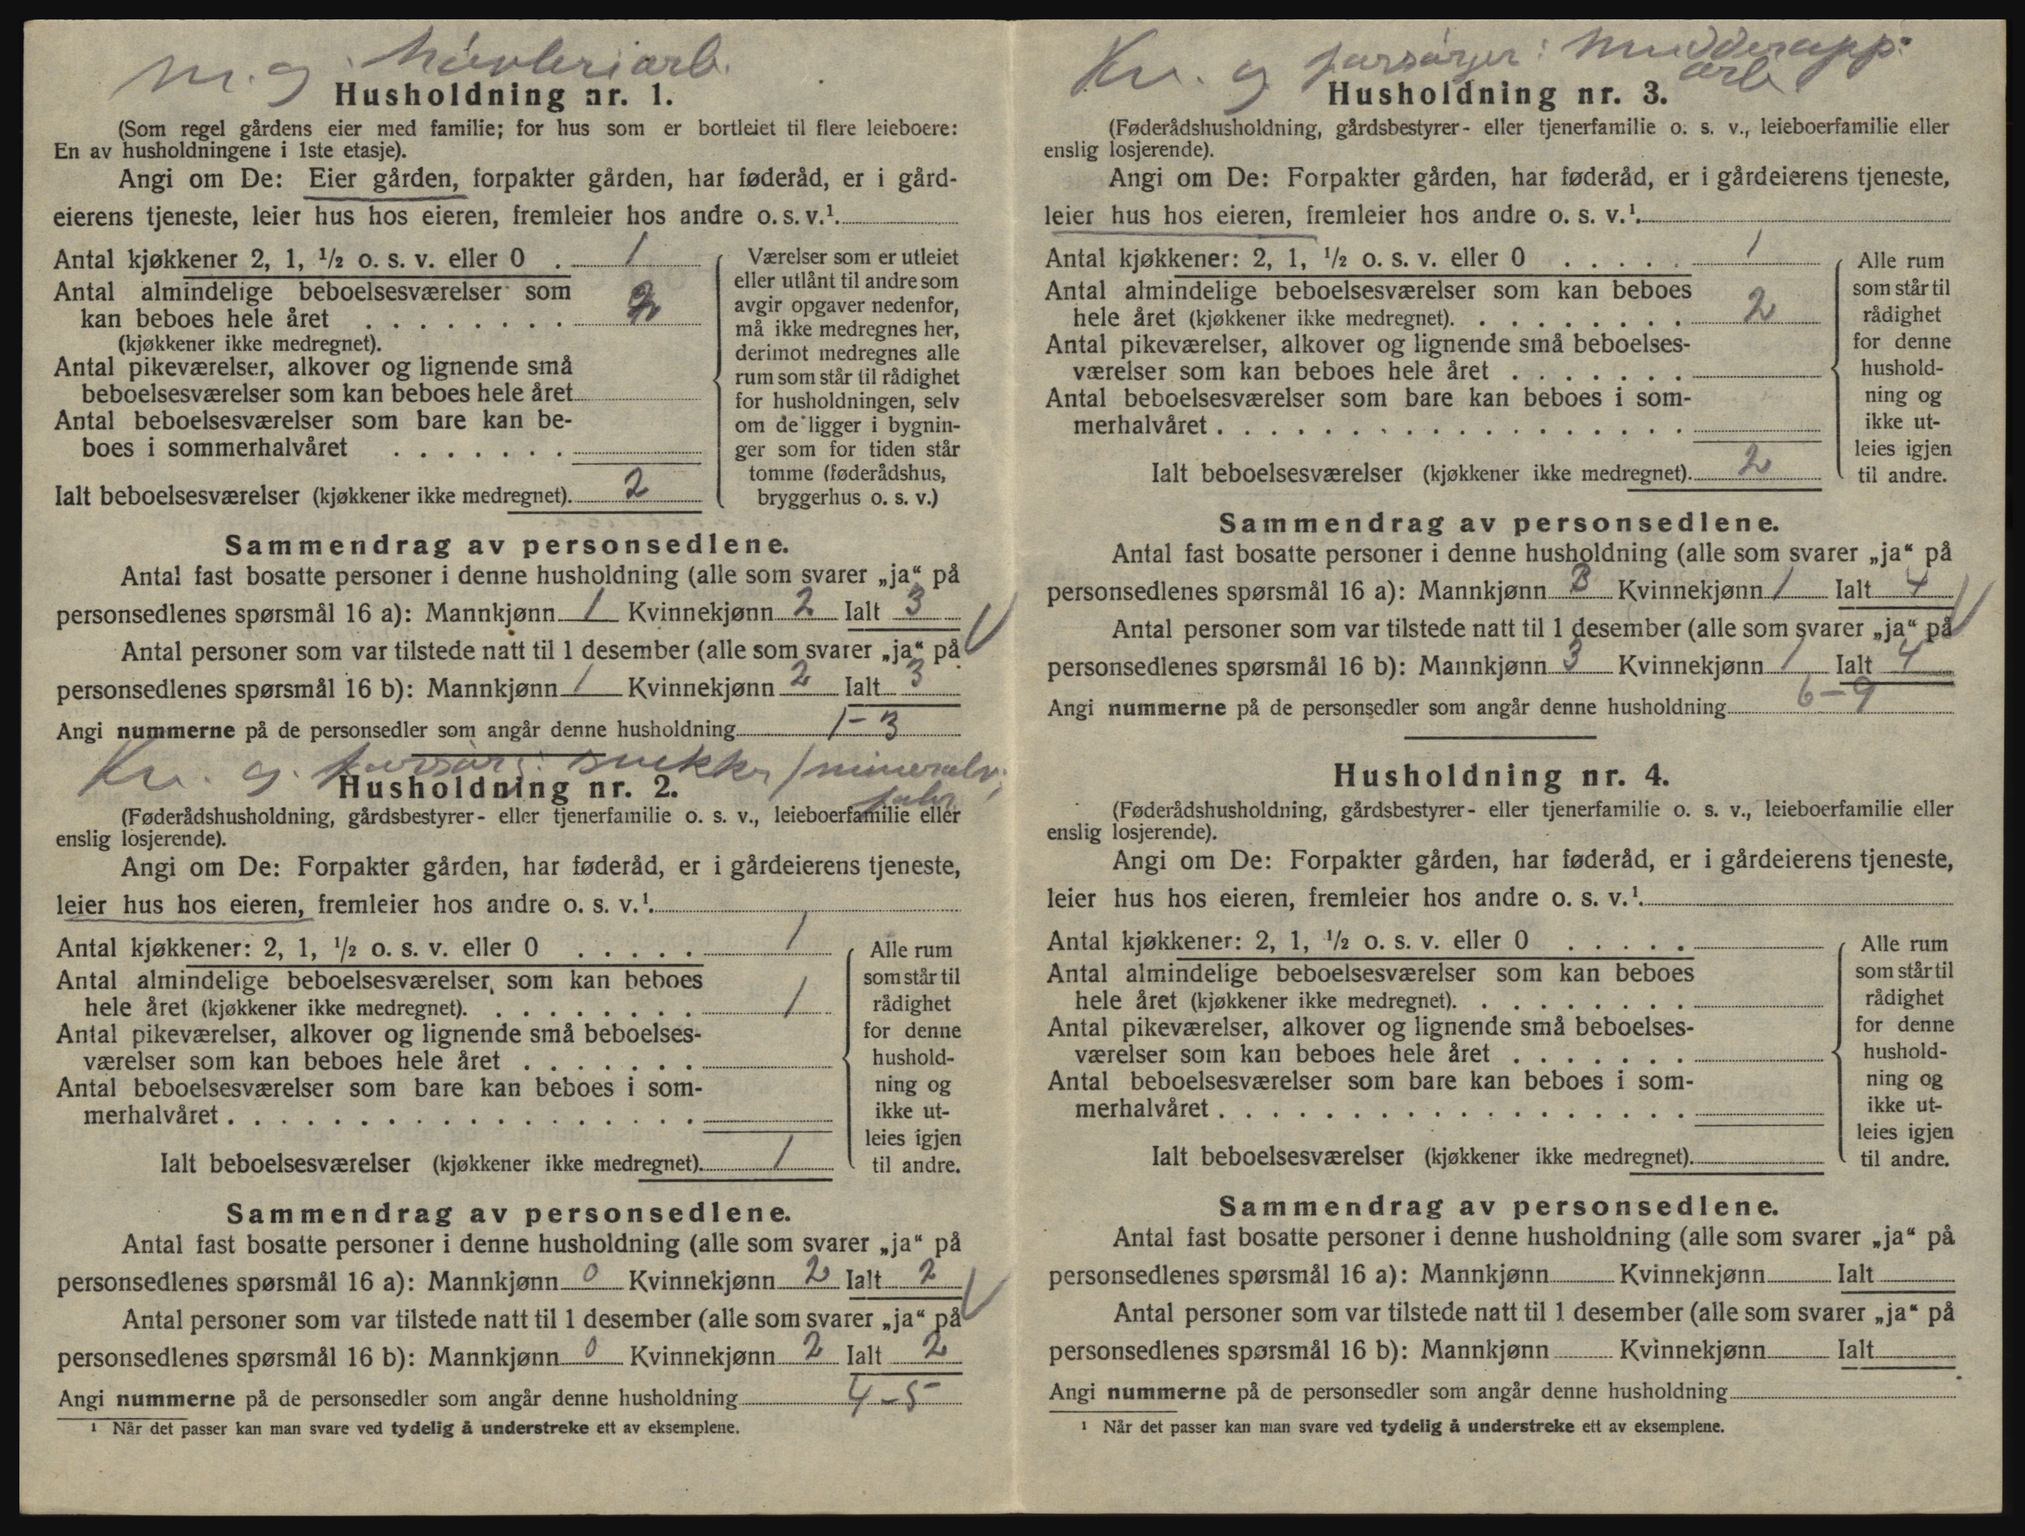 m. g. høvleriarb.
Husholdning nr. 1.
(Som regel gårdens eier med familie; for hus som er bortleiet til flere leieboere:
En av husholdningene i 1ste etasje).
Angi om De: Eier gården, forpakter gården, har føderåd, er i gård-
eierens tjeneste, leier hus hos eieren, fremleier hos andre o. s. v.¹.
Antal kjøkkener 2, 1, ½ o. s. v. eller 0 . 1
Antal almindelige beboelsesværelser som
kan beboes hele året . . . . . . . . 2
(kjøkkener ikke medregnet).
Antal pikeværelser, alkover og lignende små
beboelsesværelser som kan beboes hele året
Antal beboelsesværelser som bare kan be-
boes i sommerhalvåret . . . . . . .
Ialt beboelsesværelser (kjøkkener ikke medregnet). 2
Værelser som er utleiet
eller utlånt til andre som
avgir opgaver nedenfor,
må ikke medregnes her,
derimot medregnes alle
rum som står til rådighet
for husholdningen, selv
om de ligger i bygnin-
ger som for tiden står
tomme (føderådshus,
bryggerhus o. s. v.)
Sammendrag av personsedlene.
Antal fast bosatte personer i denne husholdning (alle som svarer „ja“ på
personsedlenes spørsmål 16 a): Mannkjønn 1 Kvinnekjønn 2 Ialt 3
Antal personer som var tilstede natt til 1 desember (alle som svarer „ja“ på
personsedlenes spørsmål 16 b): Mannkjønn 1 Kvinnekjønn 2 Ialt 3
Angi nummerne på de personsedler som angår denne husholdning 1-3
Kv. og forsørg: snekker / mineralv.
fabr.
Husholdning nr. 2.
(Føderådshusholdning, gårdsbestyrer- eller tjenerfamilie o. s. v., leieboerfamilie eller
enslig losjerende).
Angi om De: Forpakter gården, har føderåd, er i gårdeierens tjeneste,
leier hus hos eieren, fremleier hos andre o. s. v.¹.
Antal kjøkkener: 2, 1, ½ o. s. v. eller 0 . . . . . 1
Antal almindelige beboelsesværelser, som kan beboes
hele året (kjøkkener ikke medregnet). . . . . . . . . 1
Antal pikeværelser, alkover og lignende små beboelses-
værelser som kan beboes hele året . . . . . . .
Antal beboelsesværelser som bare kan beboes i som-
merhalvåret . . . . . . . . . . . . . . . . . .
Ialt beboelsesværelser (kjøkkener ikke medregnet). 1
Alle rum
som står til
rådighet
for denne
hushold-
ning og
ikke ut-
leies igjen
til andre.
Sammendrag av personsedlene.
Antal fast bosatte personer i denne husholdning (alle som svarer „ja“ på
personsedlenes spørsmål 16 a): Mannkjønn 0 Kvinnekjønn 2 Ialt 2
Antal personer som var tilstede natt til 1 desember (alle som svarer „ja“ på
personsedlenes spørsmål 16 b): Mannkjønn 0 Kvinnekjønn 2 Ialt 2
Angi nummerne på de personsedler som angår denne husholdning 4-5
¹ Når det passer kan man svare ved tydelig å understreke ett av eksemplene.
Kv. og forsørger: Mudderapp.
arb.
Husholdning nr. 3.
(Føderådshusholdning, gårdsbestyrer- eller tjenerfamilie o. s. v., leieboerfamilie eller
enslig losjerende).
Angi om De: Forpakter gården, har føderåd, er i gårdeierens tjeneste,
leier hus hos eieren, fremleier hos andre o. s. v.¹.
Antal kjøkkener: 2, 1, ½ o. s. v. eller 0 . . . . . 1
Antal almindelige beboelsesværelser som kan beboes
hele året (kjøkkener ikke medregnet). . . . . . . . . 2
Antal pikeværelser, alkover og lignende små beboelses-
værelser som kan beboes hele året . . . . . . .
Antal beboelsesværelser som bare kan beboes i som-
merhalvåret . . . . . . . . . . . . . . . . . .
Ialt beboelsesværelser (kjøkkener ikke medregnet). 2
Alle rum
som står til
rådighet
for denne
hushold-
ning og
ikke ut-
leies igjen
til andre.
Sammendrag av personsedlene.
Antal fast bosatte personer i denne husholdning (alle som svarer „ja“ på
personsedlenes spørsmål 16 a): Mannkjønn 3 Kvinnekjønn 1 Ialt 4
Antal personer som var tilstede natt til 1 desember (alle som svarer „ja“ på
personsedlenes spørsmål 16 b): Mannkjønn 3 Kvinnekjønn 1 Ialt 4
Angi nummerne på de personsedler som angår denne husholdning 6-9
Husholdning nr. 4.
(Føderådshusholdning, gårdsbestyrer- eller tjenerfamilie o. s. v., leieboerfamilie eller
enslig losjerende).
Angi om De: Forpakter gården, har føderåd, er i gårdeierens tjeneste,
leier hus hos eieren, fremleier hos andre o. s. v.¹.
Antal kjøkkener: 2, 1, ½ o. s. v. eller 0 . . . . .
Antal almindelige beboelsesværelser som kan beboes
hele året (kjøkkener ikke medregnet). . . . . . . . .
Antal pikeværelser, alkover og lignende små beboelses-
værelser som kan beboes hele året . . . . . . .
Antal beboelsesværelser som bare kan beboes i som-
merhalvåret . . . . . . . . . . . . . . . . . .
Ialt beboelsesværelser (kjøkkener ikke medregnet).
Alle rum
som står til
rådighet
for denne
hushold-
ning og
ikke ut-
leies igjen
til andre.
Sammendrag av personsedlene.
Antal fast bosatte personer i denne husholdning (alle som svarer „ja“ på
personsedlenes spørsmål 16 a): Mannkjønn Kvinnekjønn Ialt
Antal personer som var tilstede natt til 1 desember (alle som svarer „ja“ på
personsedlenes spørsmål 16 b): Mannkjønn Kvinnekjønn Ialt
Angi nummerne på de personsedler som angår denne husholdning
¹ Når det passer kan man svare ved tydelig å understreke ett av eksemplene.